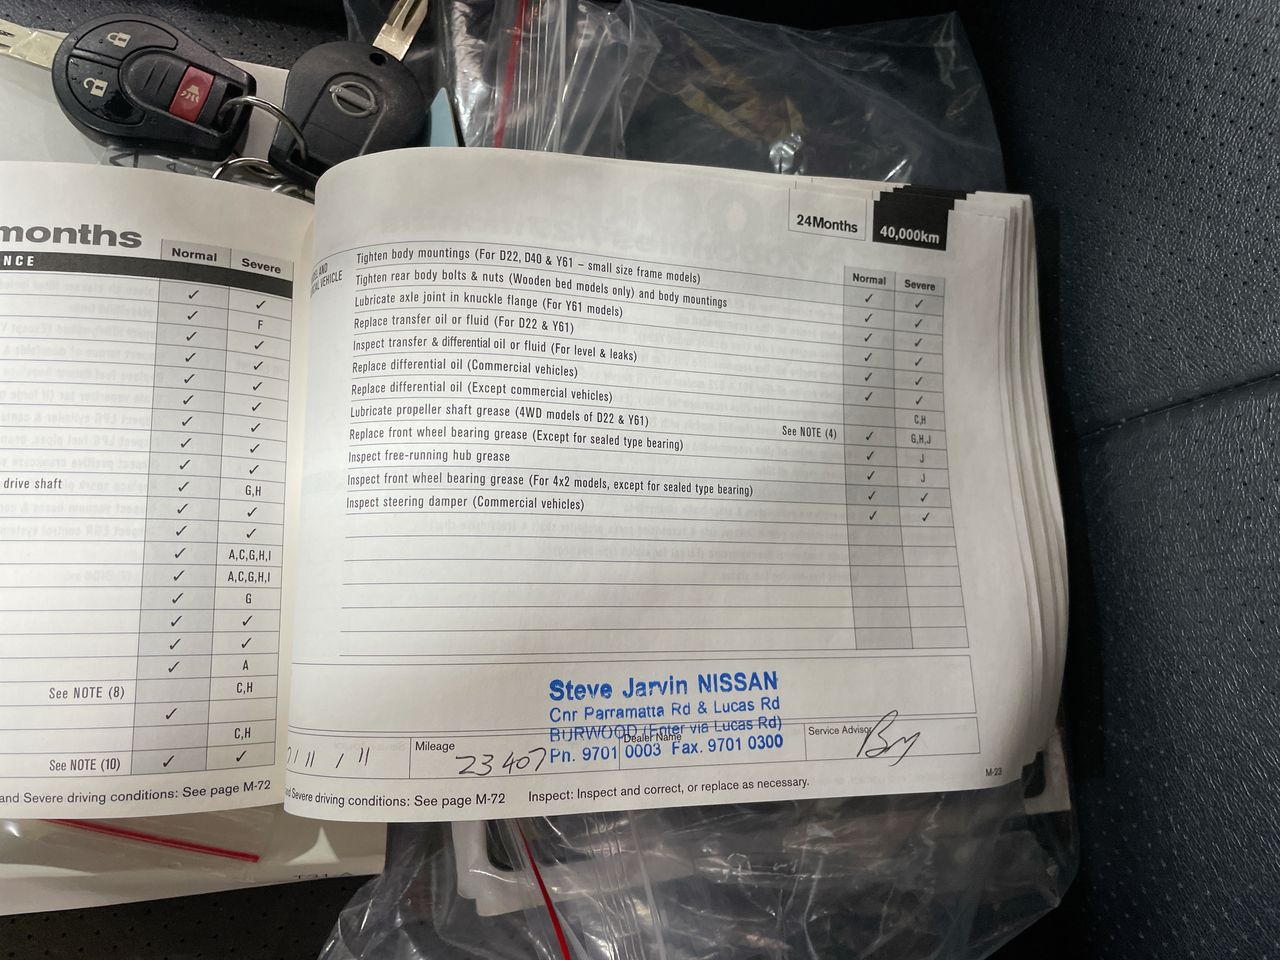 months
NCE
Normal
Severe
✓ ✓
✓ F
✓ ✓
✓ ✓
✓ ✓
✓ ✓
✓ ✓
✓ ✓
✓ ✓
drive shaft ✓ G,H
✓ ✓
✓ ✓
✓ A,C,G,H,I
✓ A,C,G,H,I
✓ G
✓ ✓
✓ ✓
✓ A
See NOTE (8) C,H
✓
C,H
See NOTE (10) ✓ ✓
and Severe driving conditions: See page M-72
24Months
40,000km
AND
VEHICLE
Normal
Severe
Tighten body mountings (For D22, D40 & Y61 – small size frame models) ✓ ✓
Tighten rear body bolts & nuts (Wooden bed models only) and body mountings ✓ ✓
Lubricate axle joint in knuckle flange (For Y61 models) ✓ ✓
Replace transfer oil or fluid (For D22 & Y61) ✓ ✓
Inspect transfer & differential oil or fluid (For level & leaks) ✓ ✓
Replace differential oil (Commercial vehicles) ✓ ✓
Replace differential oil (Except commercial vehicles) C,H
Lubricate propeller shaft grease (4WD models of D22 & Y61) See NOTE (4) ✓ G,H,J
Replace front wheel bearing grease (Except for sealed type bearing) ✓ J
Inspect free-running hub grease ✓ J
Inspect front wheel bearing grease (For 4x2 models, except for sealed type bearing) ✓ ✓
Inspect steering damper (Commercial vehicles) ✓ ✓
Steve Jarvin NISSAN
Cnr Parramatta Rd & Lucas Rd
BURWOOD (Enter via Lucas Rd)
Ph. 9701 0003 Fax. 9701 0300
/ 11 / 11
Mileage
23407
Dealer Name
Service Advisor
Severe driving conditions: See page M-72
Inspect: Inspect and correct, or replace as necessary.
M-23
T31-A